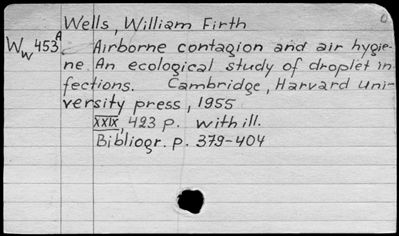 Wells, William Firth
Ww 453A Airborne contagion and air hygie-
ne. An ecological study of droplet in
fections. Cambridge, Harvard Uni-
versity press, 1955
XXIX, 423 p. with ill.
Bibliogr. p. 379-404